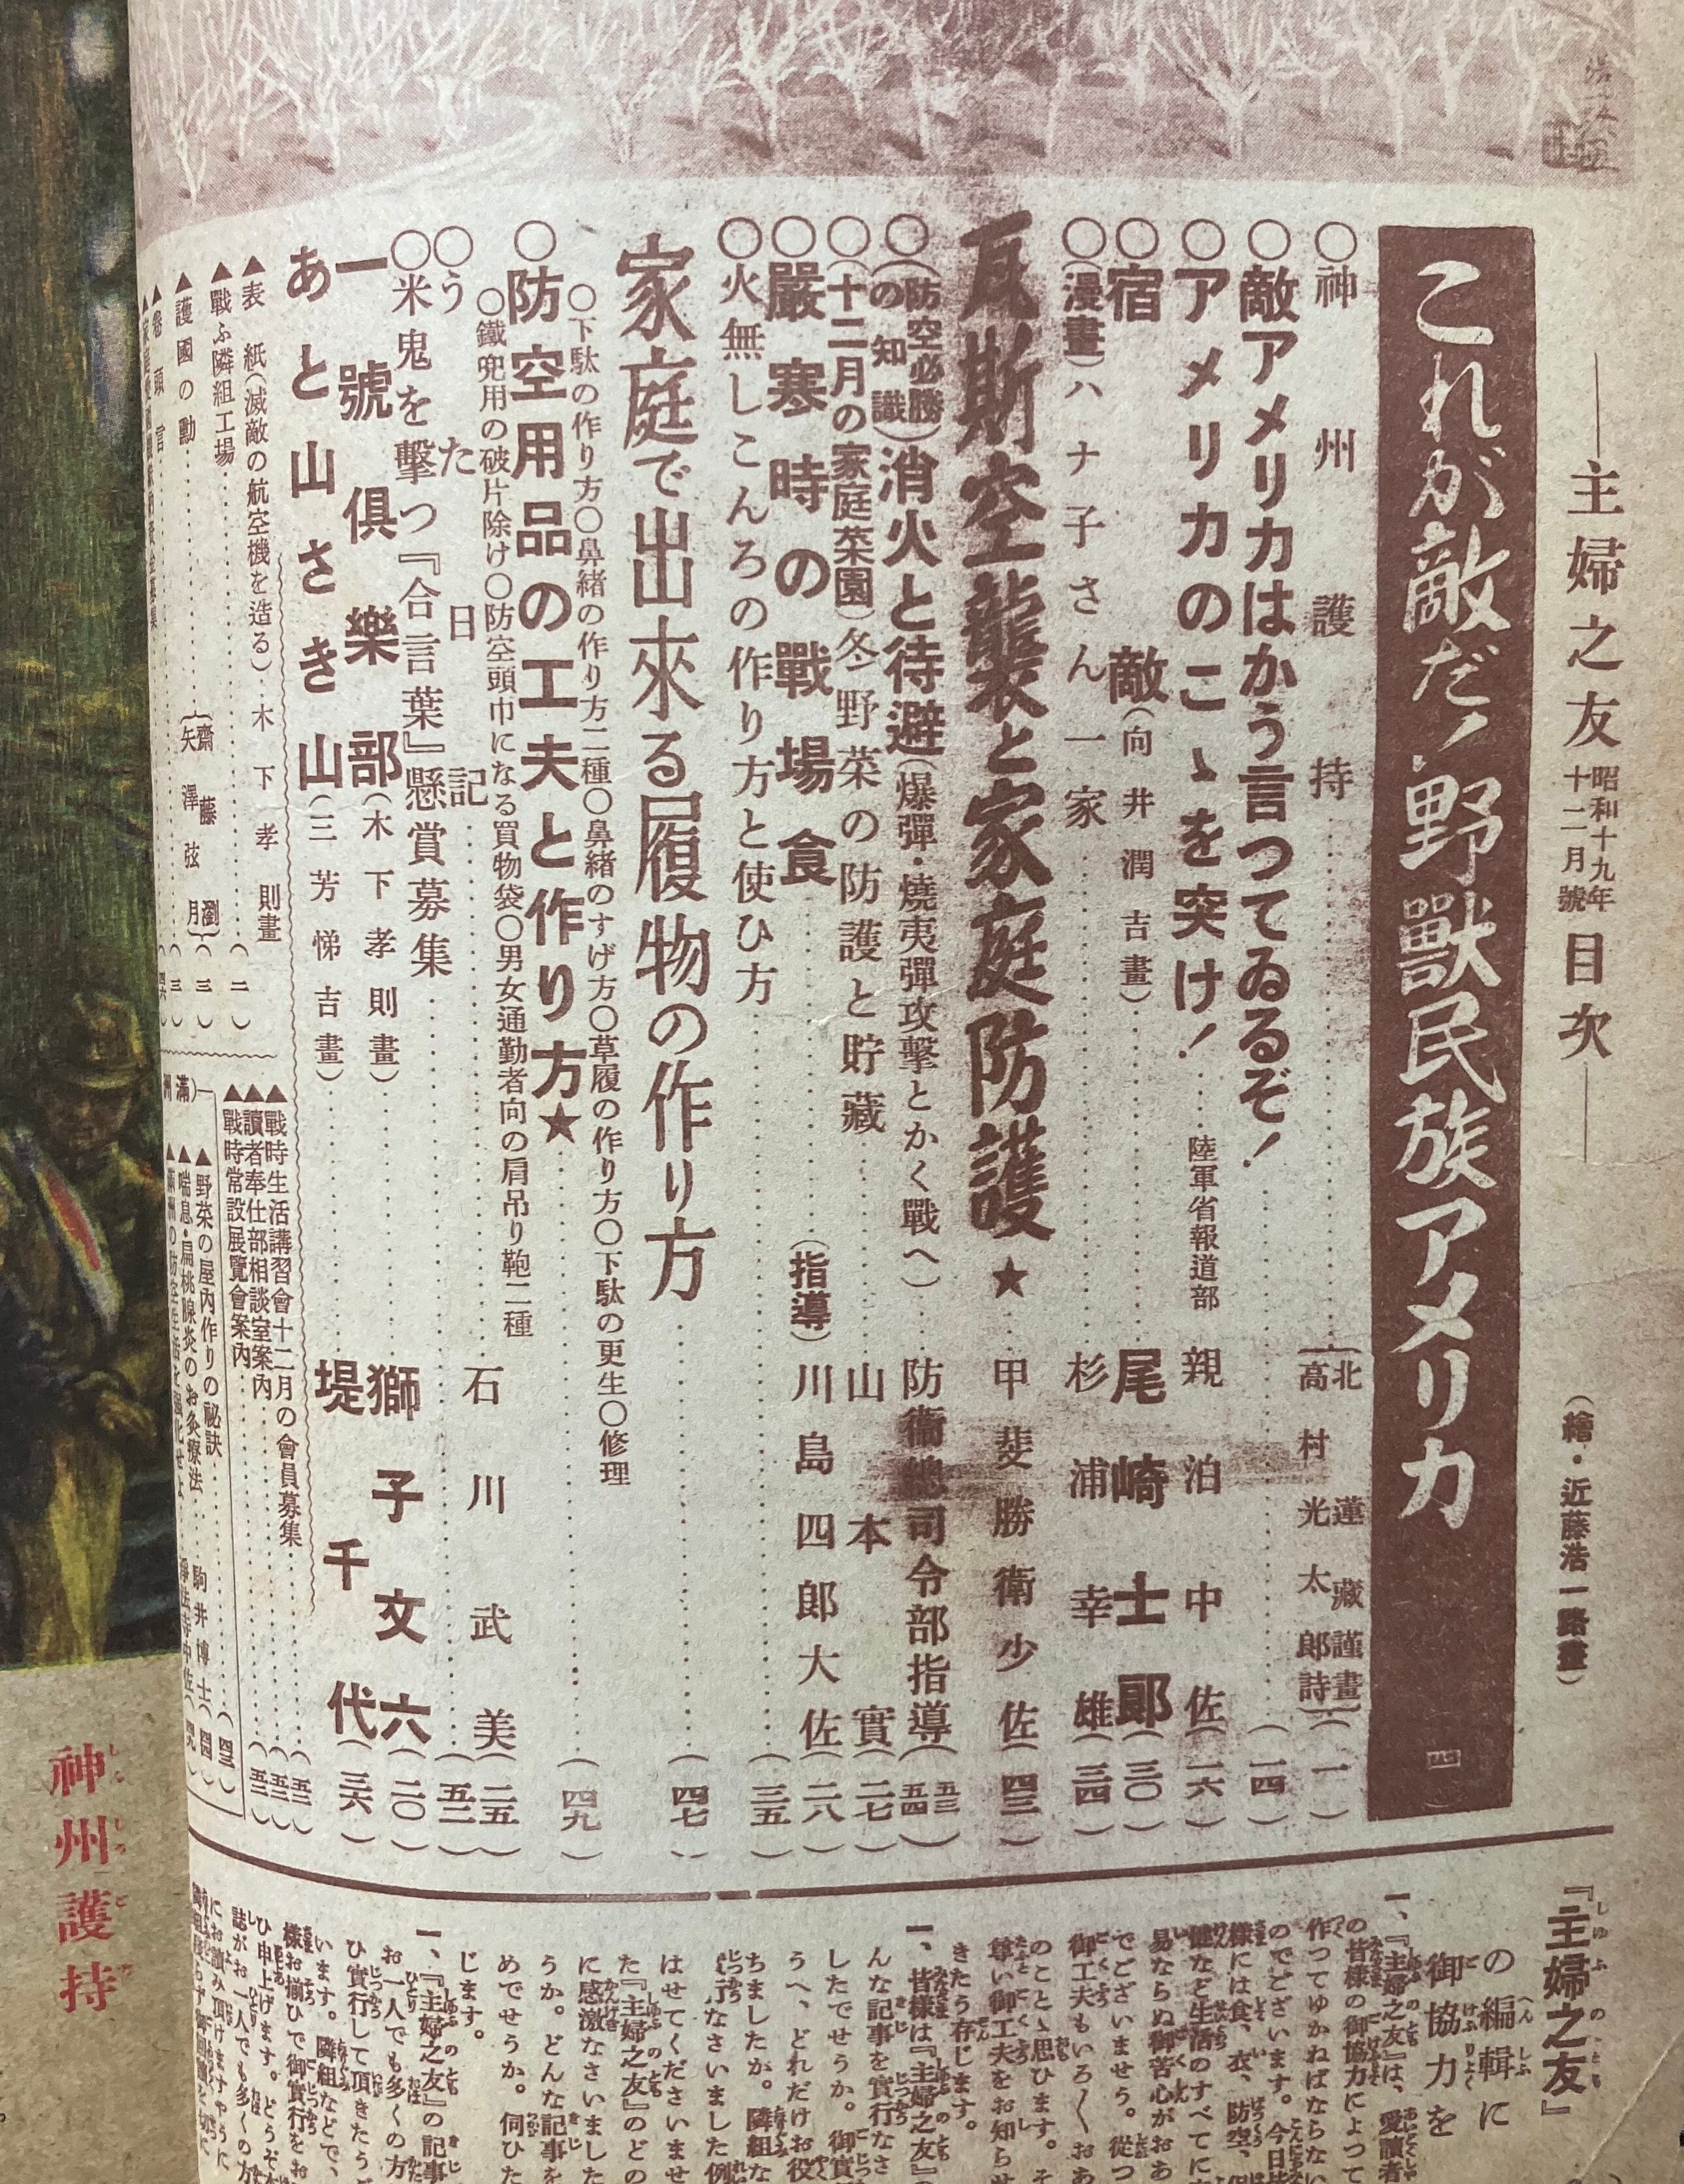 ―主婦之友 昭和十九年十二月號 目次―
(繪・近藤浩一路畫)
これが敵だ！野獸民族アメリカ (四)
○神州護持 北蓮藏謹畫 高村光太郎詩 (一)
○敵アメリカはかう言つてゐるぞ！ (一四)
○アメリカのこゝを突け！ 陸軍省報道部 親泊中佐 (一六)
○宿敵 (向井潤吉畫) 尾崎士郎 (三〇)
○(漫畫)ハナ子さん一家 杉浦幸雄 (三四)
瓦斯空襲と家庭防護★ 甲斐勝衛少佐 (四三)
○(防空必勝の知識)消火と待避(爆彈・燒夷彈攻擊とかく戰へ) 防衞總司令部指導 (五三)(五四)
○(十二月の家庭菜園)冬野菜の防護と貯藏 山本實 (二七)
○嚴寒時の戰場食 (指導)川島四郎大佐 (二八)
○火無しこんろの作り方と使ひ方 (三五)
家庭で出來る履物の作り方 (四七)
○下駄の作り方○鼻緒の作り方二種○鼻緒のすげ方○草履の作り方○下駄の更生○修理
○防空用品の工夫と作り方★ (四九)
○鐵兜用の破片除け○防空頭巾になる買物袋○男女通勤者向の肩吊り鞄二種
○うた日記 石川武美 (二五)
○米鬼を擊つ『合言葉』懸賞募集 (五二)
一號俱樂部 (木下孝則畫) 獅子文六 (二〇)
あと山さき山 (三芳悌吉畫) 堤千代 (三六)
▲表紙(滅敵の航空機を造る) 木下孝則畫
▲戰ふ隣組工場 (二)
▲護國の勳 齋藤瀏 矢澤弦月 (三)
▲卷頭言 (三)
▲戰時生活講習會十二月の會員募集 (五二)
▲讀者奉仕部相談室案內 (五二)
▲戰時常設展覽會案內 (五二)
▲野菜の屋內作りの祕訣 駒井博士 (四三)
▲喘息・扁桃腺炎のお灸療法
『主婦之友』
の編輯に
御協力を
一、『主婦之友』は、愛讀者
の皆樣の御協力によつて
作つてゆかねばならない
のでございます。今日
樣には食、衣、防空、
健など生活のすべてに
易ならぬ御苦心がおあ
でございませう。從つ
御工夫もいろ〱おあ
のことゝ思ひます。そ
尊い御工夫をお知らせ
きたう存じます。
一、皆樣は『主婦之友』
んな記事を實行なさ
したでせうか。御實
うへ、どれだけお役
ちましたか。隣組な
行なさいました例
はせてくださいませ
た『主婦之友』のどの
に感激なさいました
うか。どんな記事を
めでせうか。伺ひた
じます。
一、『主婦之友』の記事
お一人でも多くの方
ひ實行して頂きたう
います。隣組などで、
樣お揃ひで御實行をお
ひ申上げます。どうぞ
誌がお一人でも多くの方
にお讀み頂けますやうに
神州護持